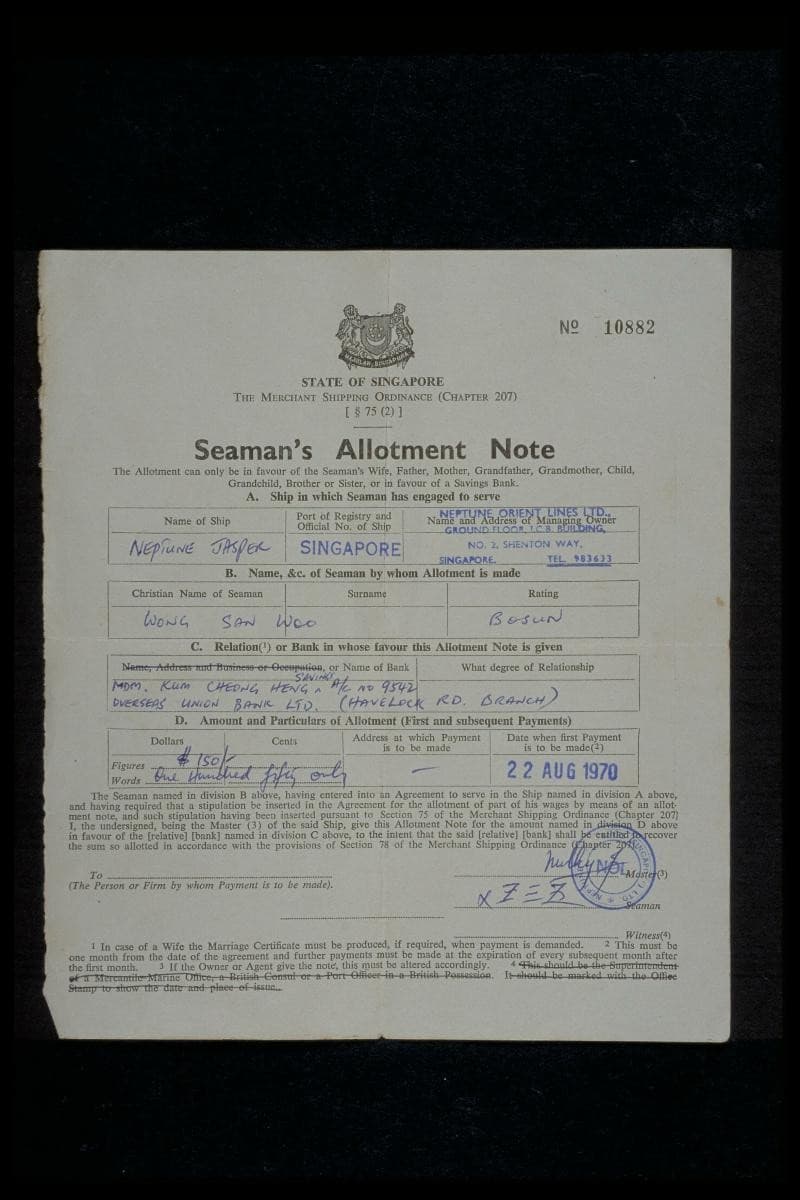 MAJULAH SINGAPURA
Nº 10882
STATE OF SINGAPORE
THE MERCHANT SHIPPING ORDINANCE (CHAPTER 207)
[ § 75 (2) ]
Seaman's Allotment Note
The Allotment can only be in favour of the Seaman's Wife, Father, Mother, Grandfather, Grandmother, Child,
Grandchild, Brother or Sister, or in favour of a Savings Bank.
A. Ship in which Seaman has engaged to serve
Name of Ship
Port of Registry and
Official No. of Ship
Name and Address of Managing Owner
NEPTUNE JASPER
SINGAPORE
NEPTUNE ORIENT LINES LTD.,
GROUND FLOOR, I.C.B. BUILDING,
NO. 2, SHENTON WAY,
SINGAPORE. TEL. 983633
B. Name, &c. of Seaman by whom Allotment is made
Christian Name of Seaman
Surname
Rating
WONG SAN WOO
BOSUN
C. Relation(¹) or Bank in whose favour this Allotment Note is given
Name, Address and Business or Occupation, or Name of Bank
What degree of Relationship
SAVINGS
MDM. KUM CHEONG HENG A/C NO 9542
OVERSEAS UNION BANK LTD. (HAVELOCK RD. BRANCH)
D. Amount and Particulars of Allotment (First and subsequent Payments)
Dollars
Cents
Address at which Payment
is to be made
Date when first Payment
is to be made(²)
Figures $ 150/-
Words One Hundred fifty only
—
22 AUG 1970
The Seaman named in division B above, having entered into an Agreement to serve in the Ship named in division A above,
and having required that a stipulation be inserted in the Agreement for the allotment of part of his wages by means of an allot-
ment note, and such stipulation having been inserted pursuant to Section 75 of the Merchant Shipping Ordinance (Chapter 207)
I, the undersigned, being the Master (3) of the said Ship, give this Allotment Note for the amount named in division D above
in favour of the [relative] [bank] named in division C above, to the intent that the said [relative] [bank] shall be entitled to recover
the sum so allotted in accordance with the provisions of Section 78 of the Merchant Shipping Ordinance (Chapter 207).
To
(The Person or Firm by whom Payment is to be made).
NOL
Master(3)
X
Seaman
Witness(⁴)
¹ In case of a Wife the Marriage Certificate must be produced, if required, when payment is demanded. ² This must be
one month from the date of the agreement and further payments must be made at the expiration of every subsequent month after
the first month. ³ If the Owner or Agent give the note, this must be altered accordingly. ⁴ This should be the Superintendent
of a Mercantile Marine Office, a British Consul or a Port Officer in a British Possession. It should be marked with the Office
Stamp to show the date and place of issue.